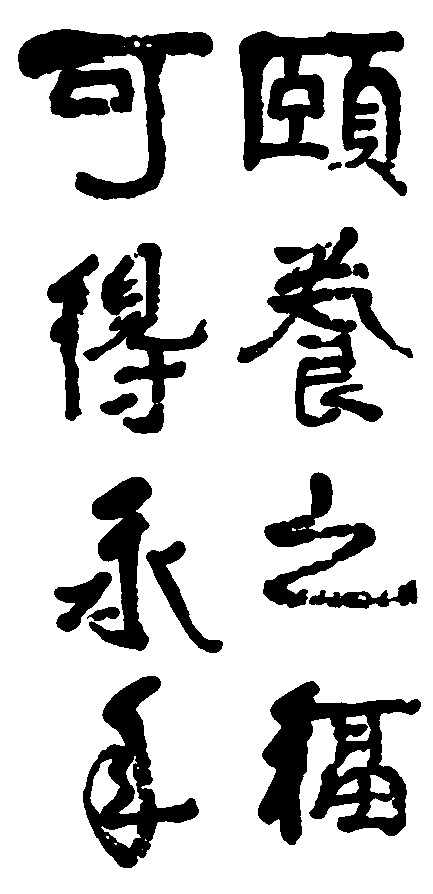 頤養之福
可得永年